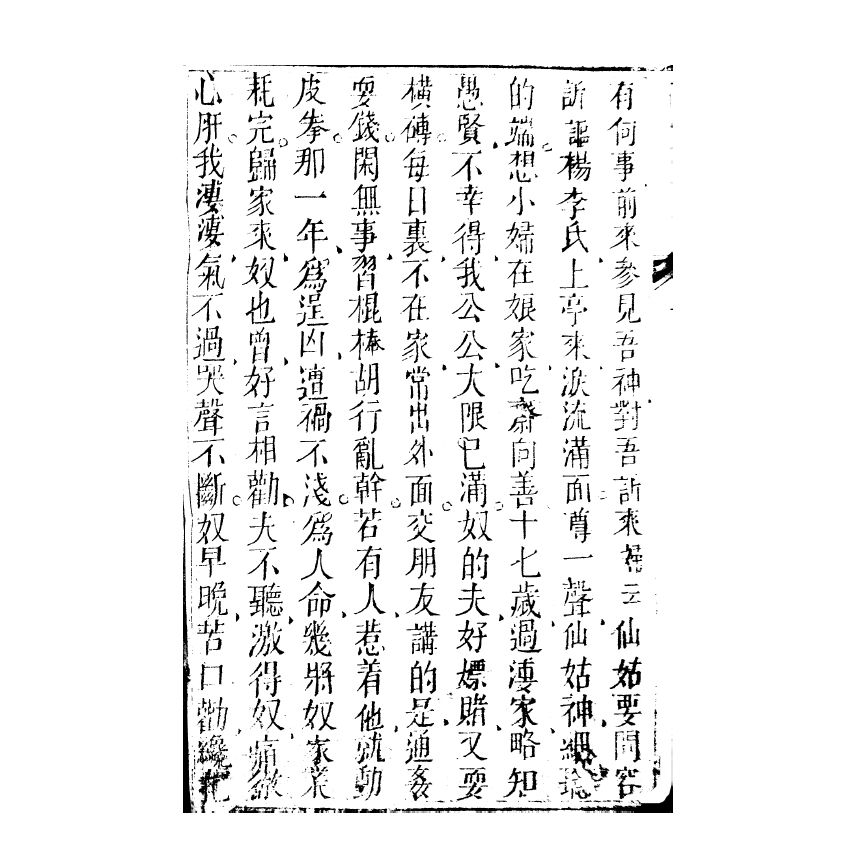 有何事前來參見吾神對吾訴來神云仙姑要問容
訴謳楊李氏上亭來淚流滿面尊一聲仙姑神細聽
的端想小婦在娘家吃齋向善十七歲過淒家略知
愚賢不幸得我公公大限已滿奴的夫好嫖賭又耍
橫磚每日裏不在家常出外面交朋友講的是通姦
耍錢閑無事習棍棒胡行亂幹若有人惹着他就動
皮拳那一年為逞凶遭禍不淺為人命幾將奴家業
耗完歸家來奴也曾好言相勸夫不聽激得奴痛斷
心肝我淒淒氣不過哭聲不斷奴早晚苦口勸纔把